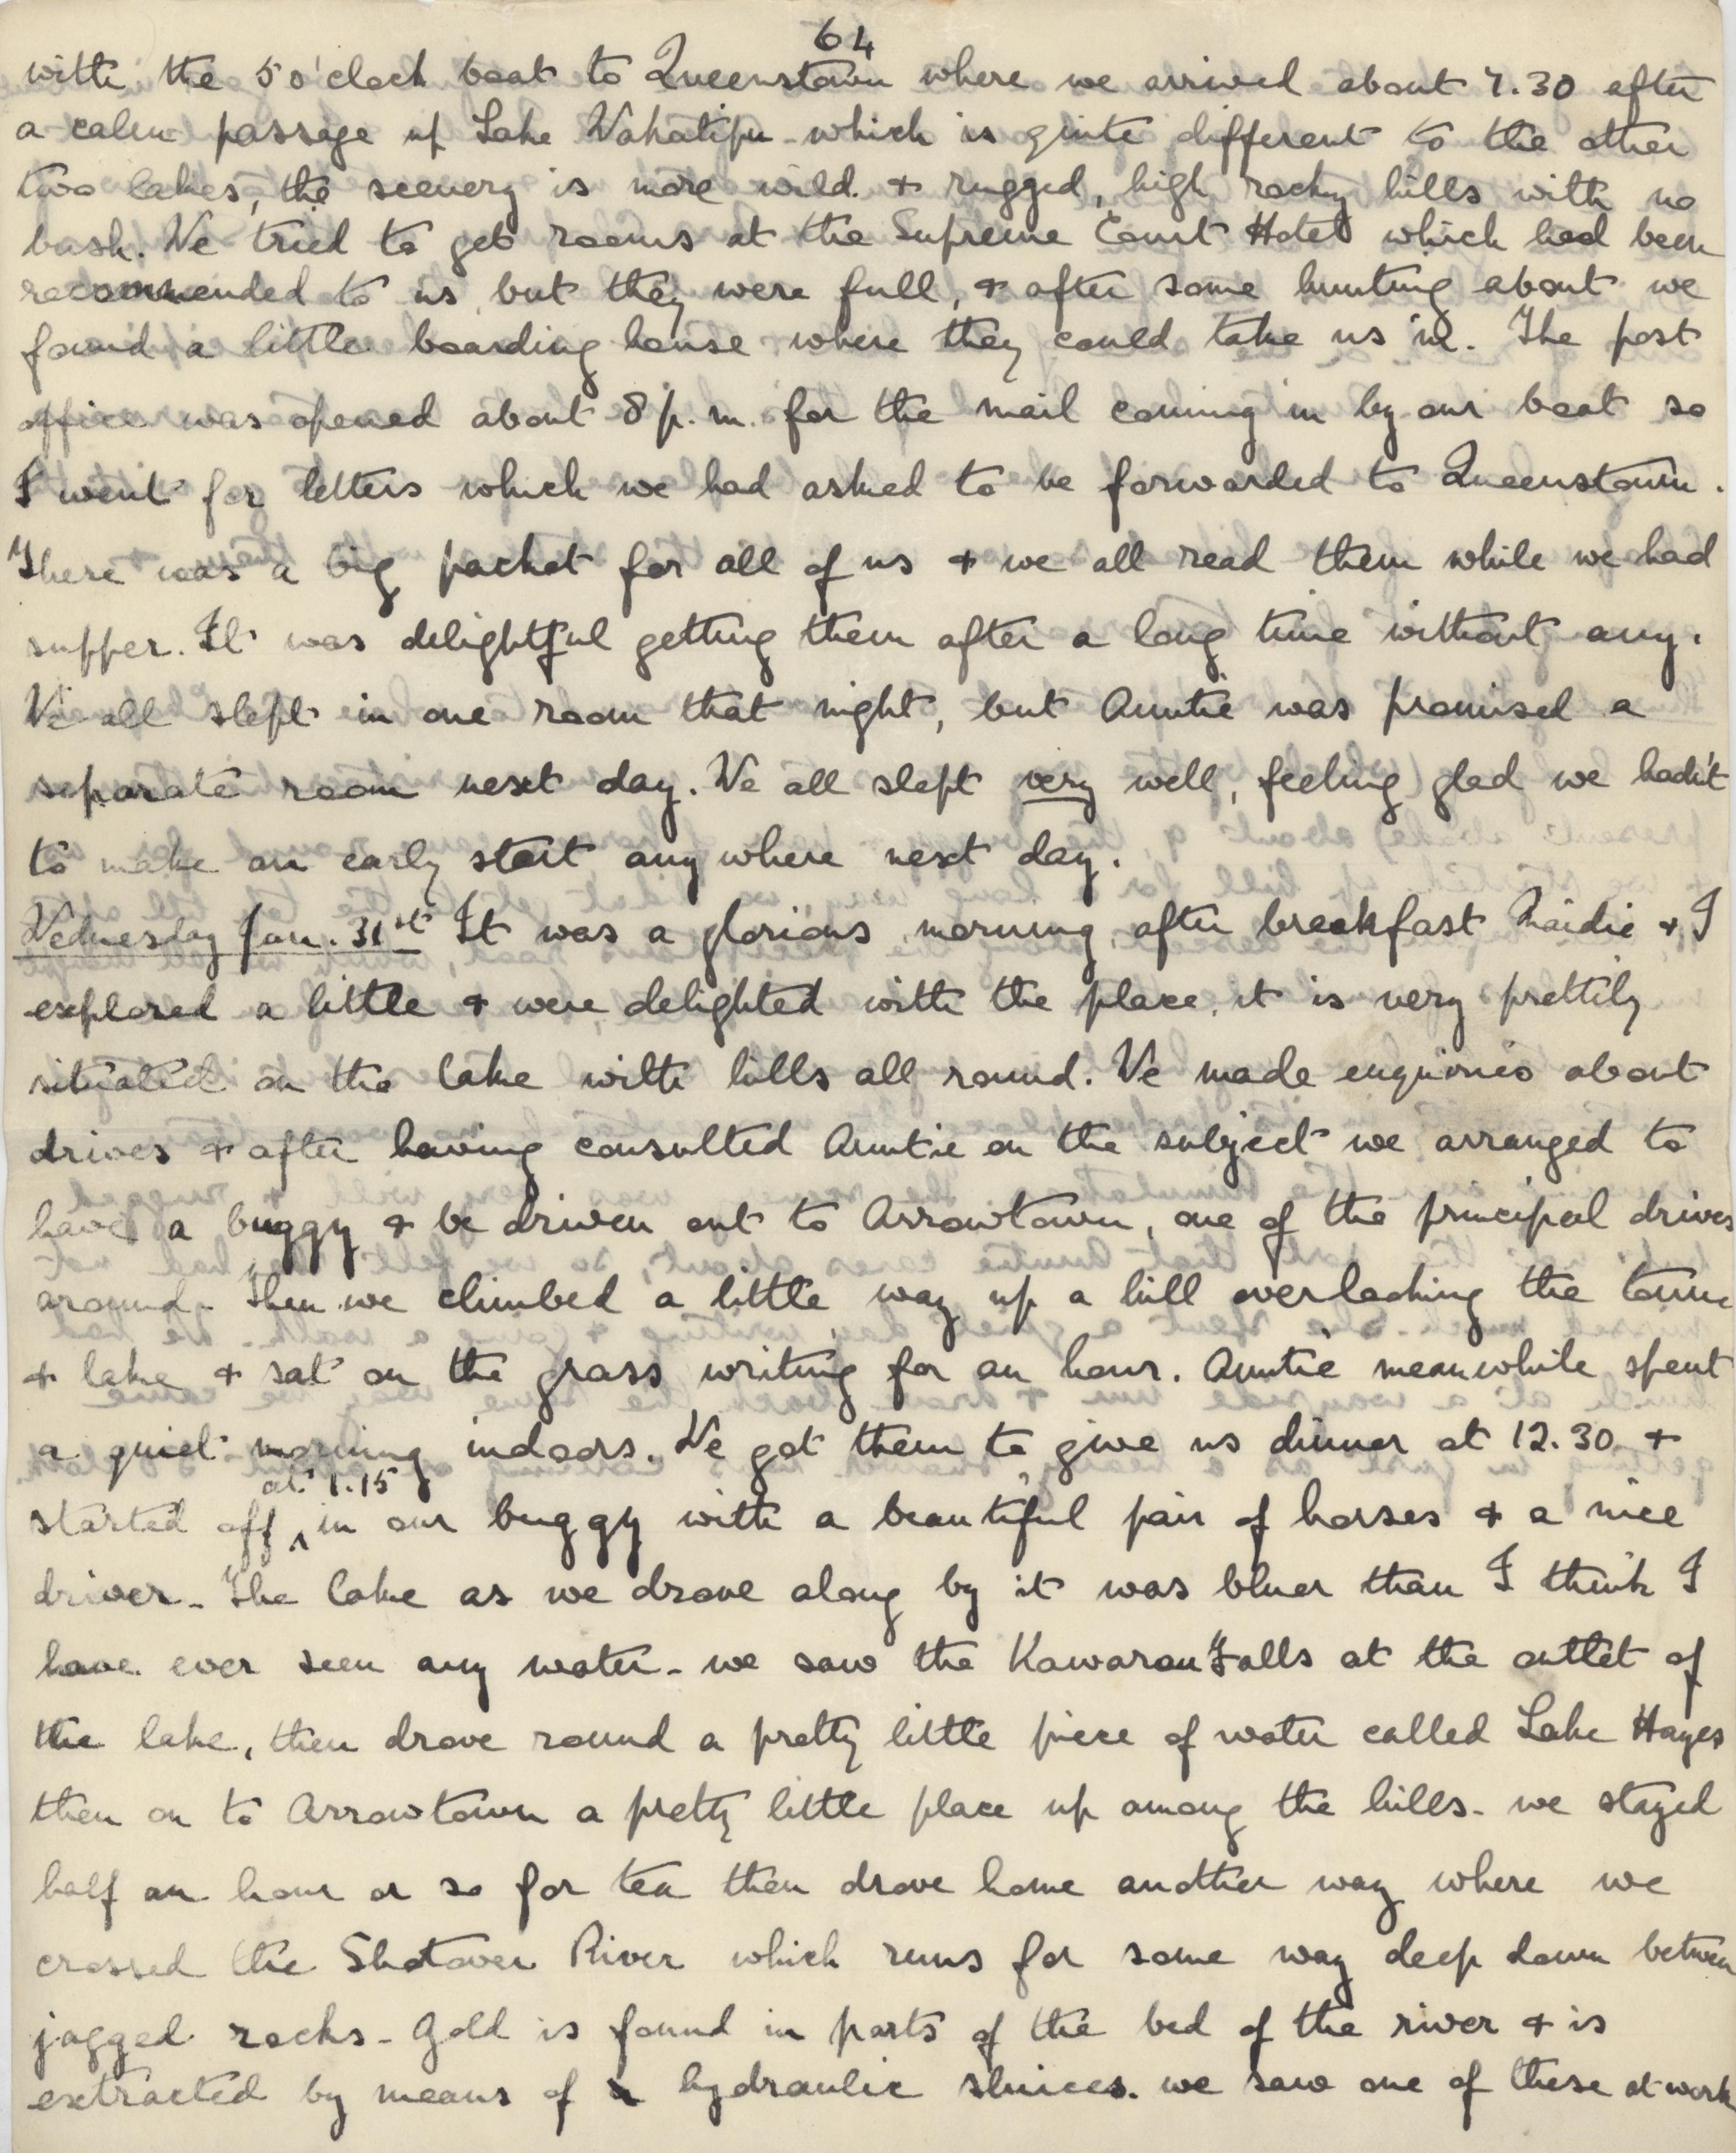 64
with the 5 o'clock boat to Queenstown where we arrived about 7.30 after
a calm passage up Lake Wakatipu which is quite different to the other
two lakes, the scenery is more wild & rugged, high rocky hills with no
bush. We tried to get rooms at the Supreme Court Hotel which had been
recommended to us but they were full, & after some hunting about we
found a little boarding house where they could take us in. The post
office was opened about 8 p.m. for the mail coming in by our boat so
I went for letters which we had asked to be forwarded to Queenstown.
There was a big packet for all of us & we all read them while we had
supper. It was delightful getting them after a long time without any.
We all slept in one room that night, but Auntie was promised a
separate room next day. We all slept very well, feeling glad we hadn't
to make an early start anywhere next day.
Wednesday Jan. 31st It was a glorious morning, after breakfast Maidie & I
explored a little & were delighted with the place, it is very prettily
situated on the lake with hills all round. We made enquiries about
drives & after having consulted Auntie on the subject we arranged to
have a buggy & be driven out to Arrowtown, one of the principal drives
around. Then we climbed a little way up a hill overlooking the town
& lake & sat on the grass writing for an hour. Auntie meanwhile spent
a quiet morning indoors. We got them to give us dinner at 12.30 &
at 1.15
started off ^ in our buggy with a beautiful pair of horses & a nice
driver - The lake as we drove along by it was bluer than I think I
have ever seen any water - we saw the Kawarau Falls at the outlet of
the lake, then drove round a pretty little piece of water called Lake Hayes
then on to Arrowtown a pretty little place up among the hills - we stayed
half an hour or so for tea then drove home another way where we
crossed the Shotover River which runs for some way deep down between
jagged rocks - Gold is found in parts of the bed of the river & is
extracted by means of hydraulic sluices. we saw one of these at work